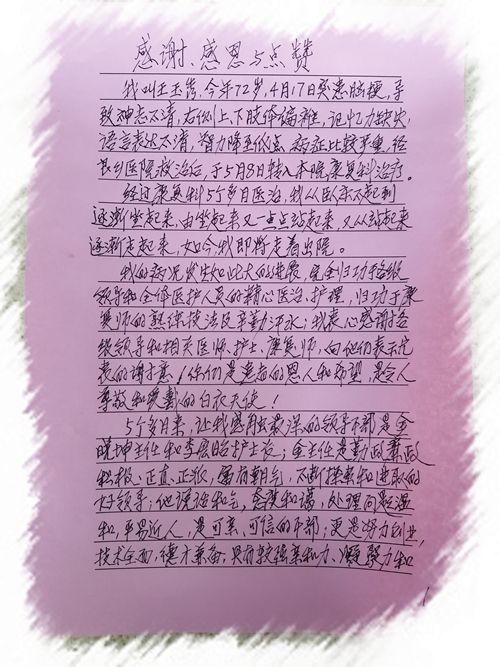 感谢、感恩与点赞
我叫王玉芳，今年72岁，4月17日突患脑梗，导
致神志不清，右侧上、下肢体偏瘫，记忆力缺失，
语言表达不清，智力降至低点，病症比较严重，经
良乡医院救治后，于5月8日转入本院康复科治疗。
经过康复科5个多月医治，我从卧床不起到
逐渐坐起来，由坐起来又一点点站起来，又从站起来
逐渐走起来，如今我即将走着出院。
我的病况发生如此大的进展，完全归功于各级
领导和全体医护人员的精心医治、护理，归功于康
复师的熟练技法及辛勤汗水；我衷心感谢各
级领导和相关医师、护士、康复师，向他们表示元
表的谢意！你们是患者的恩人和希望，是令人
尊敬和爱戴的白衣天使！
5个多月来，让我感触最深的领导干部是金
晓坤主任和李宏昭护士长；金主任是勤政兼政
积极、正直、正派，富有朝气，不断探索和进取的
好领导；他说话和气，态度和蔼，处理问题温
和，平易近人，是可亲、可信的干部；更是努力创业，
技术全面，德才兼备，具有较强亲和力、凝聚力和
1